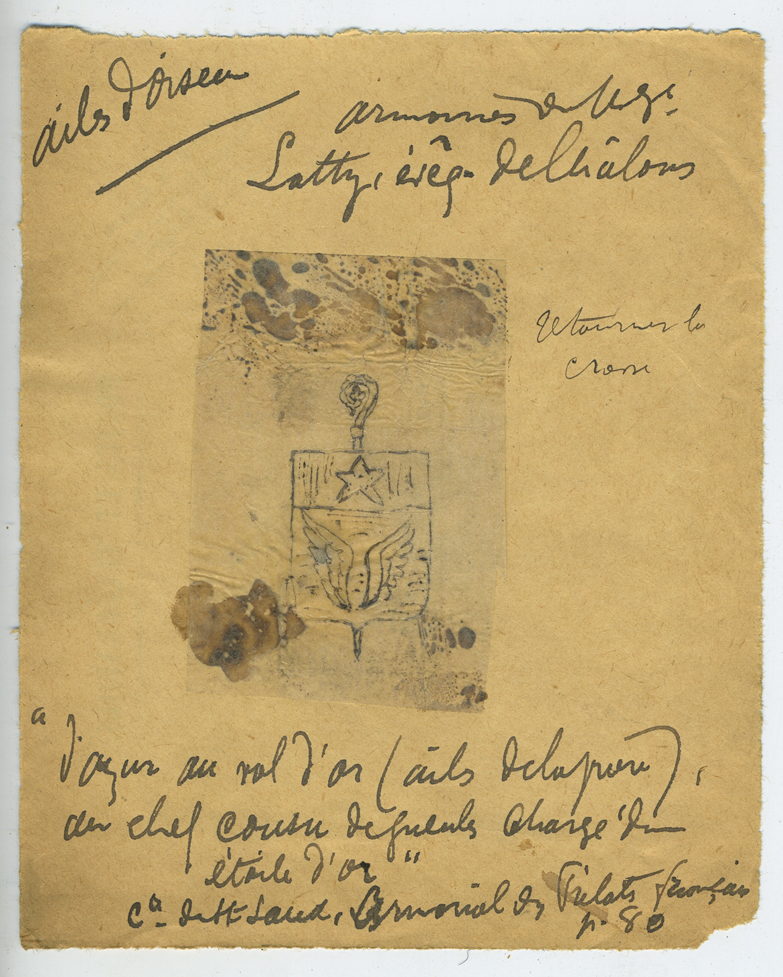 ailes d'oiseau
armoiries de Mgr
Latty, évêq. de Châlons
retourner la
crosse
"d'azur au vol d'or (ails de la prière),
au chef cousu de gueules chargé d'une
étoile d'or"
Cte de St Saud, Armorial des Prélats français
p. 80